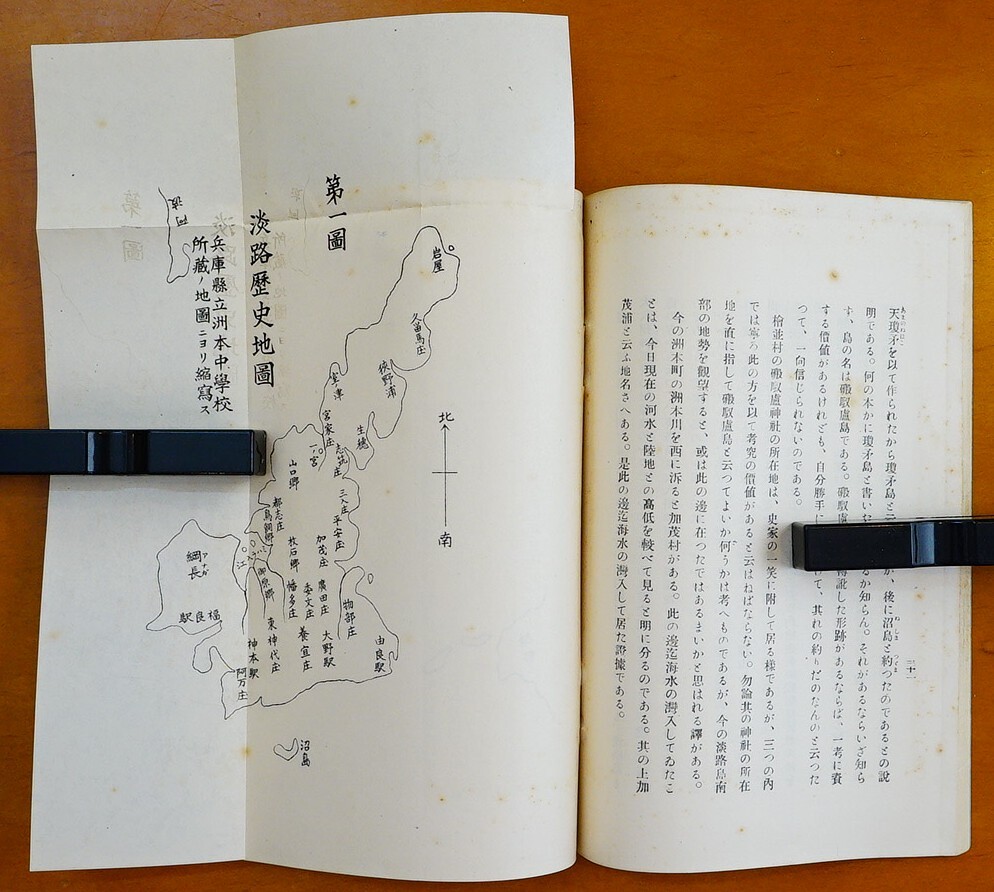 天瓊矛を以て作られたから瓊矛島と云
が、後に沼島と約つたのであるとの說
明である。何の本かに瓊矛島と書いな
るか知らん。それがあるならいざ知ら
す、島の名は磤馭盧島である。磤馭盧
轉訛した形跡があるならば、一考に資
する價値があるけれども、自分勝手に
て、其れの約りだのなんのと云つた
つて、一向信じられないのである。
檜並村の磤馭盧神社の所在地は、史家の一笑に附して居る樣であるが、三つの內
では寧ろ此の方を以て考究の價値があると云はねばならない。勿論其の神社の所在
地を直に指して磤馭盧島と云つてよいか何うかは考へものであるが、今の淡路島南
部の地勢を觀望すると、或は此の邊に在つたではあるまいかと思はれる譯がある。
今の洲本町の洲本川を西に泝ると加茂村がある。此の邊迄海水の灣入してゐたこ
とは、今日現在の河水と陸地との高低を較べて見ると明に分るのである。其の上加
茂浦と云ふ地名さへある。是此の邊迄海水の灣入して居た證據である。
三十一
第一圖
淡路歷史地圖
兵庫縣立洲本中學校
所藏ノ地圖ニヨリ縮寫ス
阿波
岩屋
久留馬庄
狹野浦
室津
宮家庄
生穗
一ノ宮
志筑庄
山口鄉
三入庄
都志庄
鳥飼鄉
平安庄
加茂庄
枚石鄉
廣田庄
幡多庄
物部庄
大野駅
由良駅
養宜庄
東神代庄
神本駅
阿万庄
綱長
福良駅
江
沼島
北
南